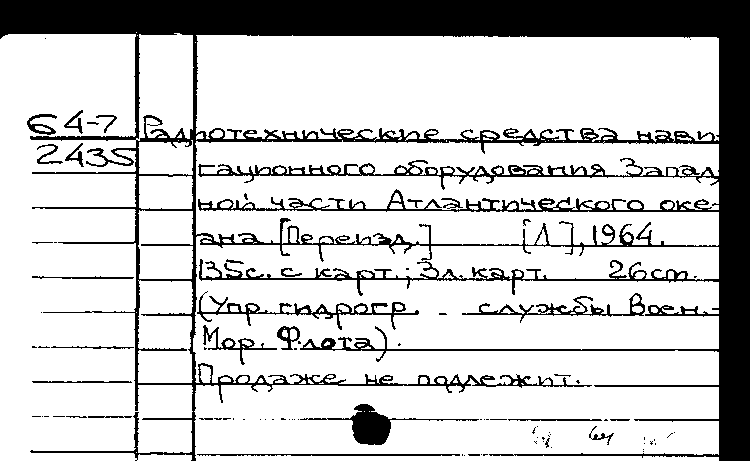 64-7 Радиотехнические средства нави-
2435 гационного оборудования Запад-
ной части Атлантического оке-
ана. [Переизд.] [Л], 1964.
135с. с карт.; 3л. карт. 26cm.
(Упр. гидрогр. - службы Воен.-
Мор. Флота).
Продаже не подлежит.